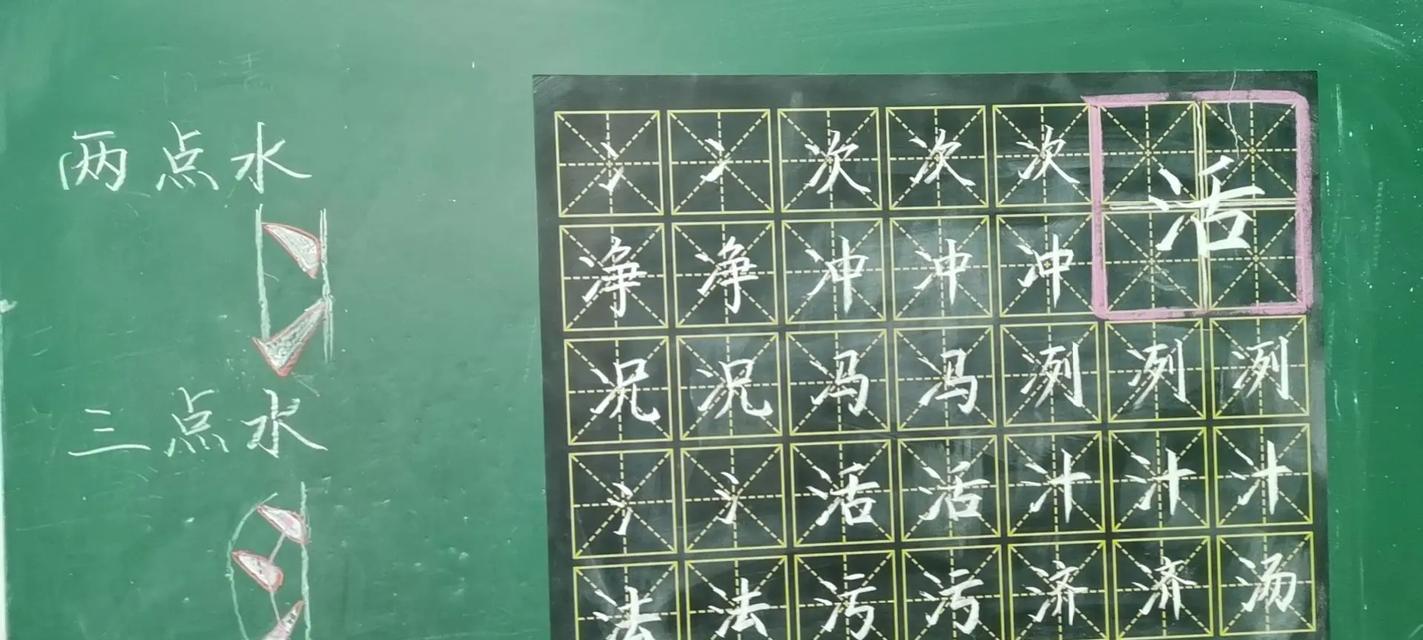 两点水
三点水
冫 冫 次 次 次 活
净 净 冲 冲 冲
况 况 冯 冯 冽 冽 冽
氵 氵 活 活 汁 汁 汁
法 法 污 污 济 济 汤